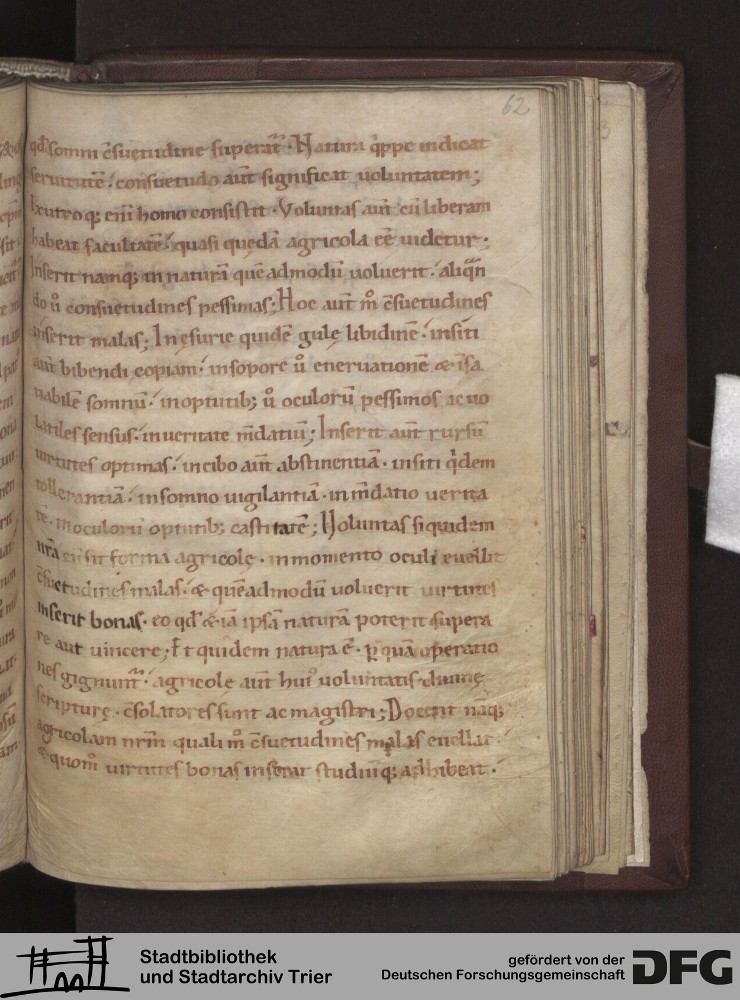 62
qđ somni c̄suetudine superat᷑. Natura q̇ppe indicat
seruitutē. consuetudo aut̄ significat uoluntatem;
Ex utroq; eni homo consistit. Voluntas aut̄ cū liberam
habeat facultatē. quasi quędā agricola eē uidetur.
Inserit namq; in naturā quēadmodū uoluerit. aliqn̄
do ů consuetudines pessimas; Hoc aut̄ m̊ c̄suetudines
inserit malas; In ęsurie quidē gulę libidinē. in siti
aut̄ bibendi copiam. in sopore ů eneruationē & īsa
tiabilē somnū. in optutib; ů oculorū pessimos ac uo
latiles sensus. in ueritate m̄datiū; Inserit aut̄ rursū
uirtutes optimas. in cibo aut̄ abstinentiā. in siti q̇dem
tollerantiā. in somno uigilantiā. in m̄datio uerita
tē. in oculorū optutib; castitatē; Uoluntas siquidem
nr̄a cū sit forma agricolę. in momento oculi euellit
c̄suetudines malas. & quēadmodū uoluerit uirtutes
inserit bonas. eo qđ & iā ipsā naturā poterit supera
re aut uincere; Et quidem natura ē. ꝑ quā operatio
nes gignunt᷑. agricole aut̄ hui᷒ uoluntatis diuinę
scripturę. c̄solatores sunt ac magistri; Docent nāq;
agricolam nr̄m quali m̊ c̄suetudines malas euellat.
& quom̊ uirtutes bonas inserat studiūq; adhibeat.
Stadtbibliothek
und Stadtarchiv Trier
gefördert von der
Deutschen Forschungsgemeinschaft
DFG